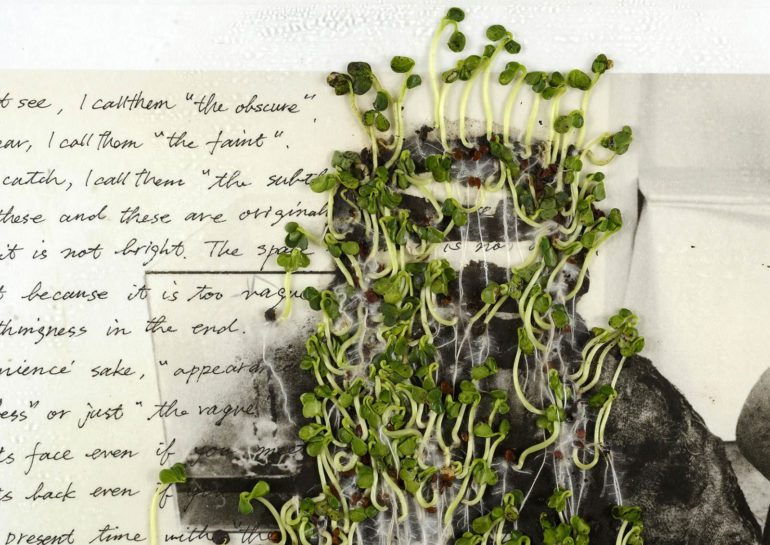 t see, I call them "the obscure",
ear, I call them "the faint".
catch, I call them "the subtl
these and these are original
it is not bright. The spa is no
t because it is too vague
thingness in the end.
nience' sake, "appeared
ess" or just "the vague
ts face even if you
ts back even if
present time with "the